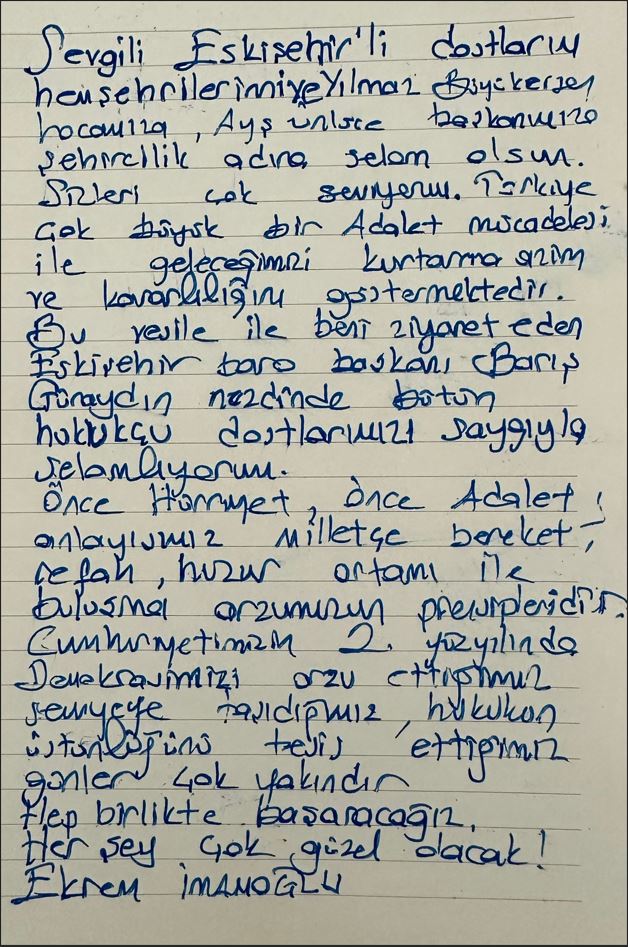 Sevgili Eskişehir'li dostlarım
hemşehrilerimiye Yılmaz Büyükerşen
hocamıza, Ayş ünlüce başkanımıza
şehircilik adına selam olsun.
Sizleri çok seviyorum. Türkiye
çok büyük bir Adalet mücadelesi
ile geleceğimizi kurtarma azim
ve kararlılığını göstermektedir.
Bu vesile ile beni ziyaret eden
Eskişehir baro başkanı Barış
Günaydın nezdinde bütün
hukukçu dostlarımızı saygıyla
selamlıyorum.
Önce Hürriyet, önce Adalet!
anlayışımız milletçe bereket,
refah, huzur ortamı ile
buluşma arzumuzun
Cumhuriyetimizin 2. yüzyılında
Demokrasimizi arzu ettiğimiz
seviyeye taşıdığımız, hukukun
üstünlüğünü tesis ettiğimiz
günler çok yakındır
Hep birlikte başaracağız.
Her şey çok güzel olacak!
Ekrem İMAMOĞLU